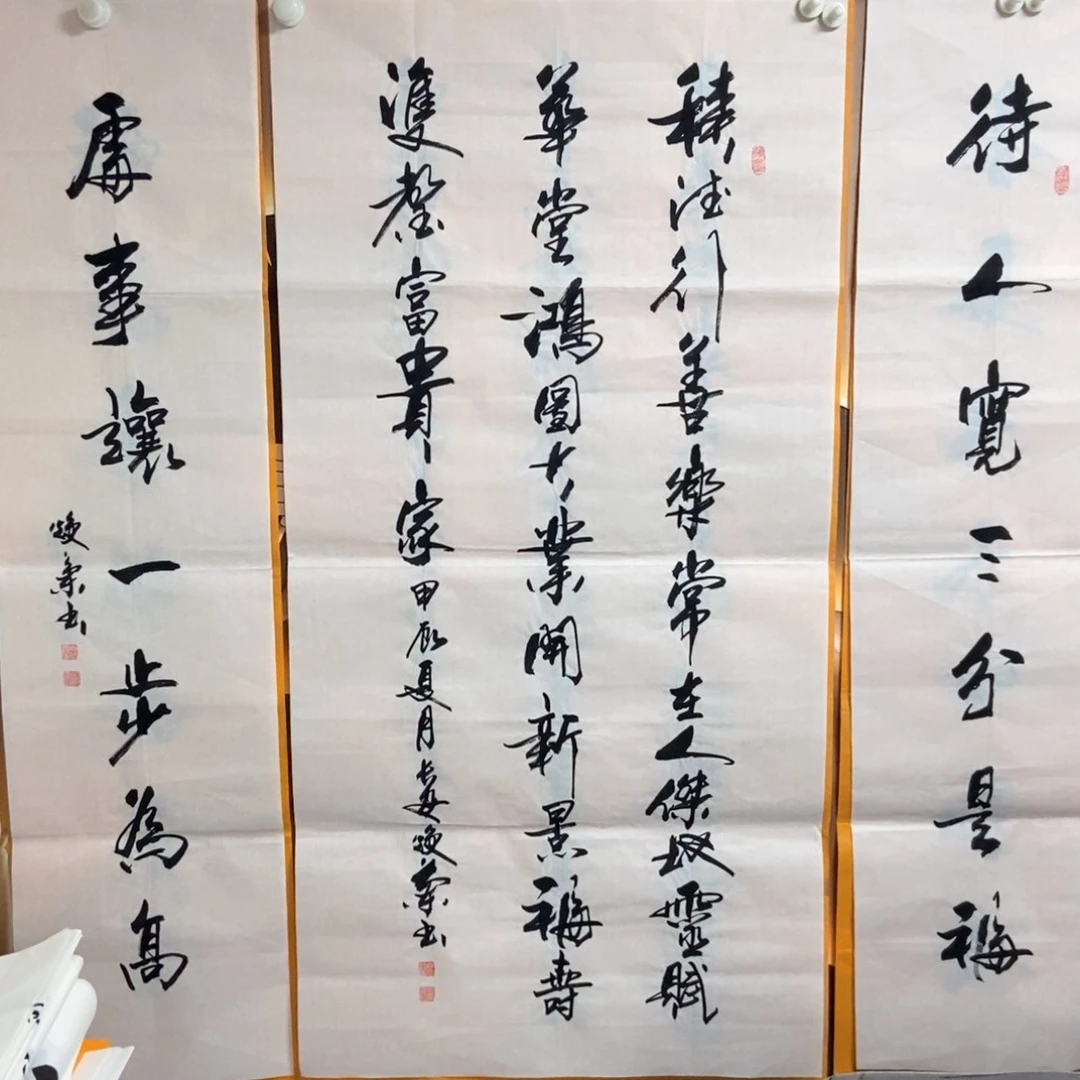 待人寬三分是福
積德行善樂常在人傑地靈賦
華堂鴻圖大業開新景福壽
雙馨富貴家甲辰夏月
處事讓一步為高